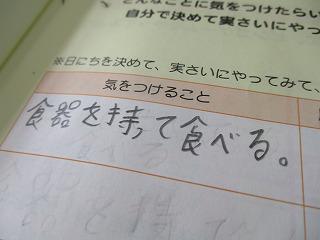 どんなことに気をつけたらい
自分で決めて実さいにやっ
※日にちを決めて、実さいにやってみて、
気をつけること
食器を持って食べる。